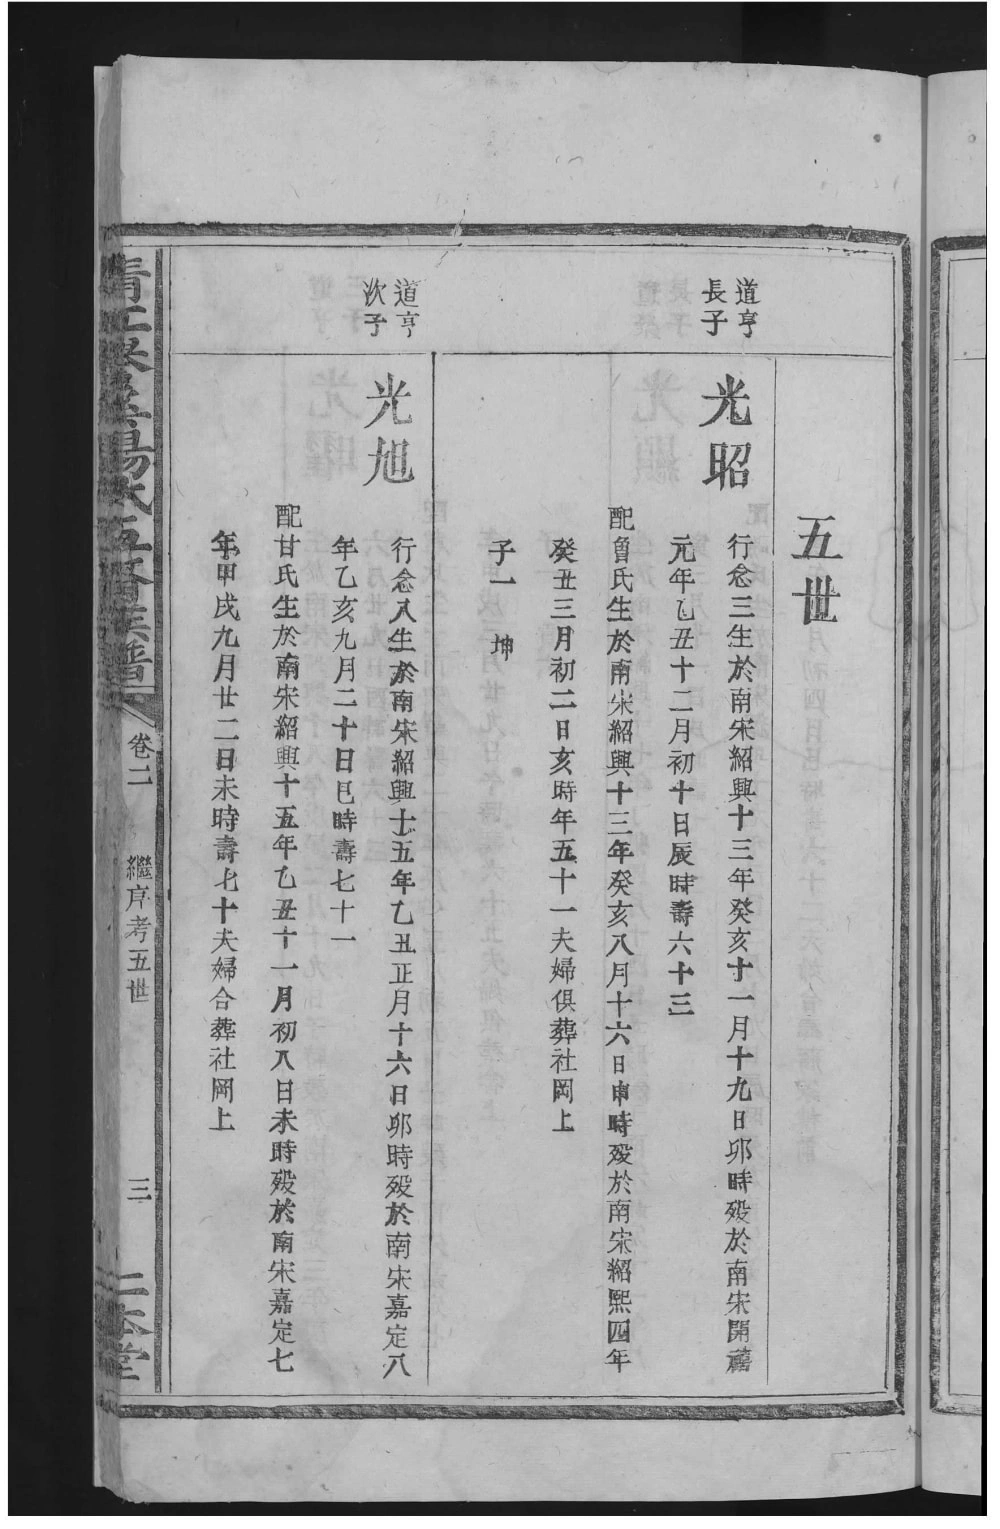 五世
道亨
長子
光昭
行念三生於南宋紹興十三年癸亥十一月十九日卯時殁於南宋開禧
元年乙丑十二月初十日辰時壽六十三
配魯氏生於南宋紹興十三年癸亥八月十六日申時殁於南宋紹熙四年
癸丑三月初二日亥時年五十一夫婦俱葬社岡上
子一 坤
道亨
次子
光旭
行念八生於南宋紹興十五年乙丑正月十六日卯時殁於南宋嘉定八
年乙亥九月二十日巳時壽七十一
配甘氏生於南宋紹興十五年乙丑十一月初八日未時殁於南宋嘉定七
年甲戌九月廿二日未時壽七十夫婦合葬社岡上
五修族譜
卷二
繼序考五世
三
堂